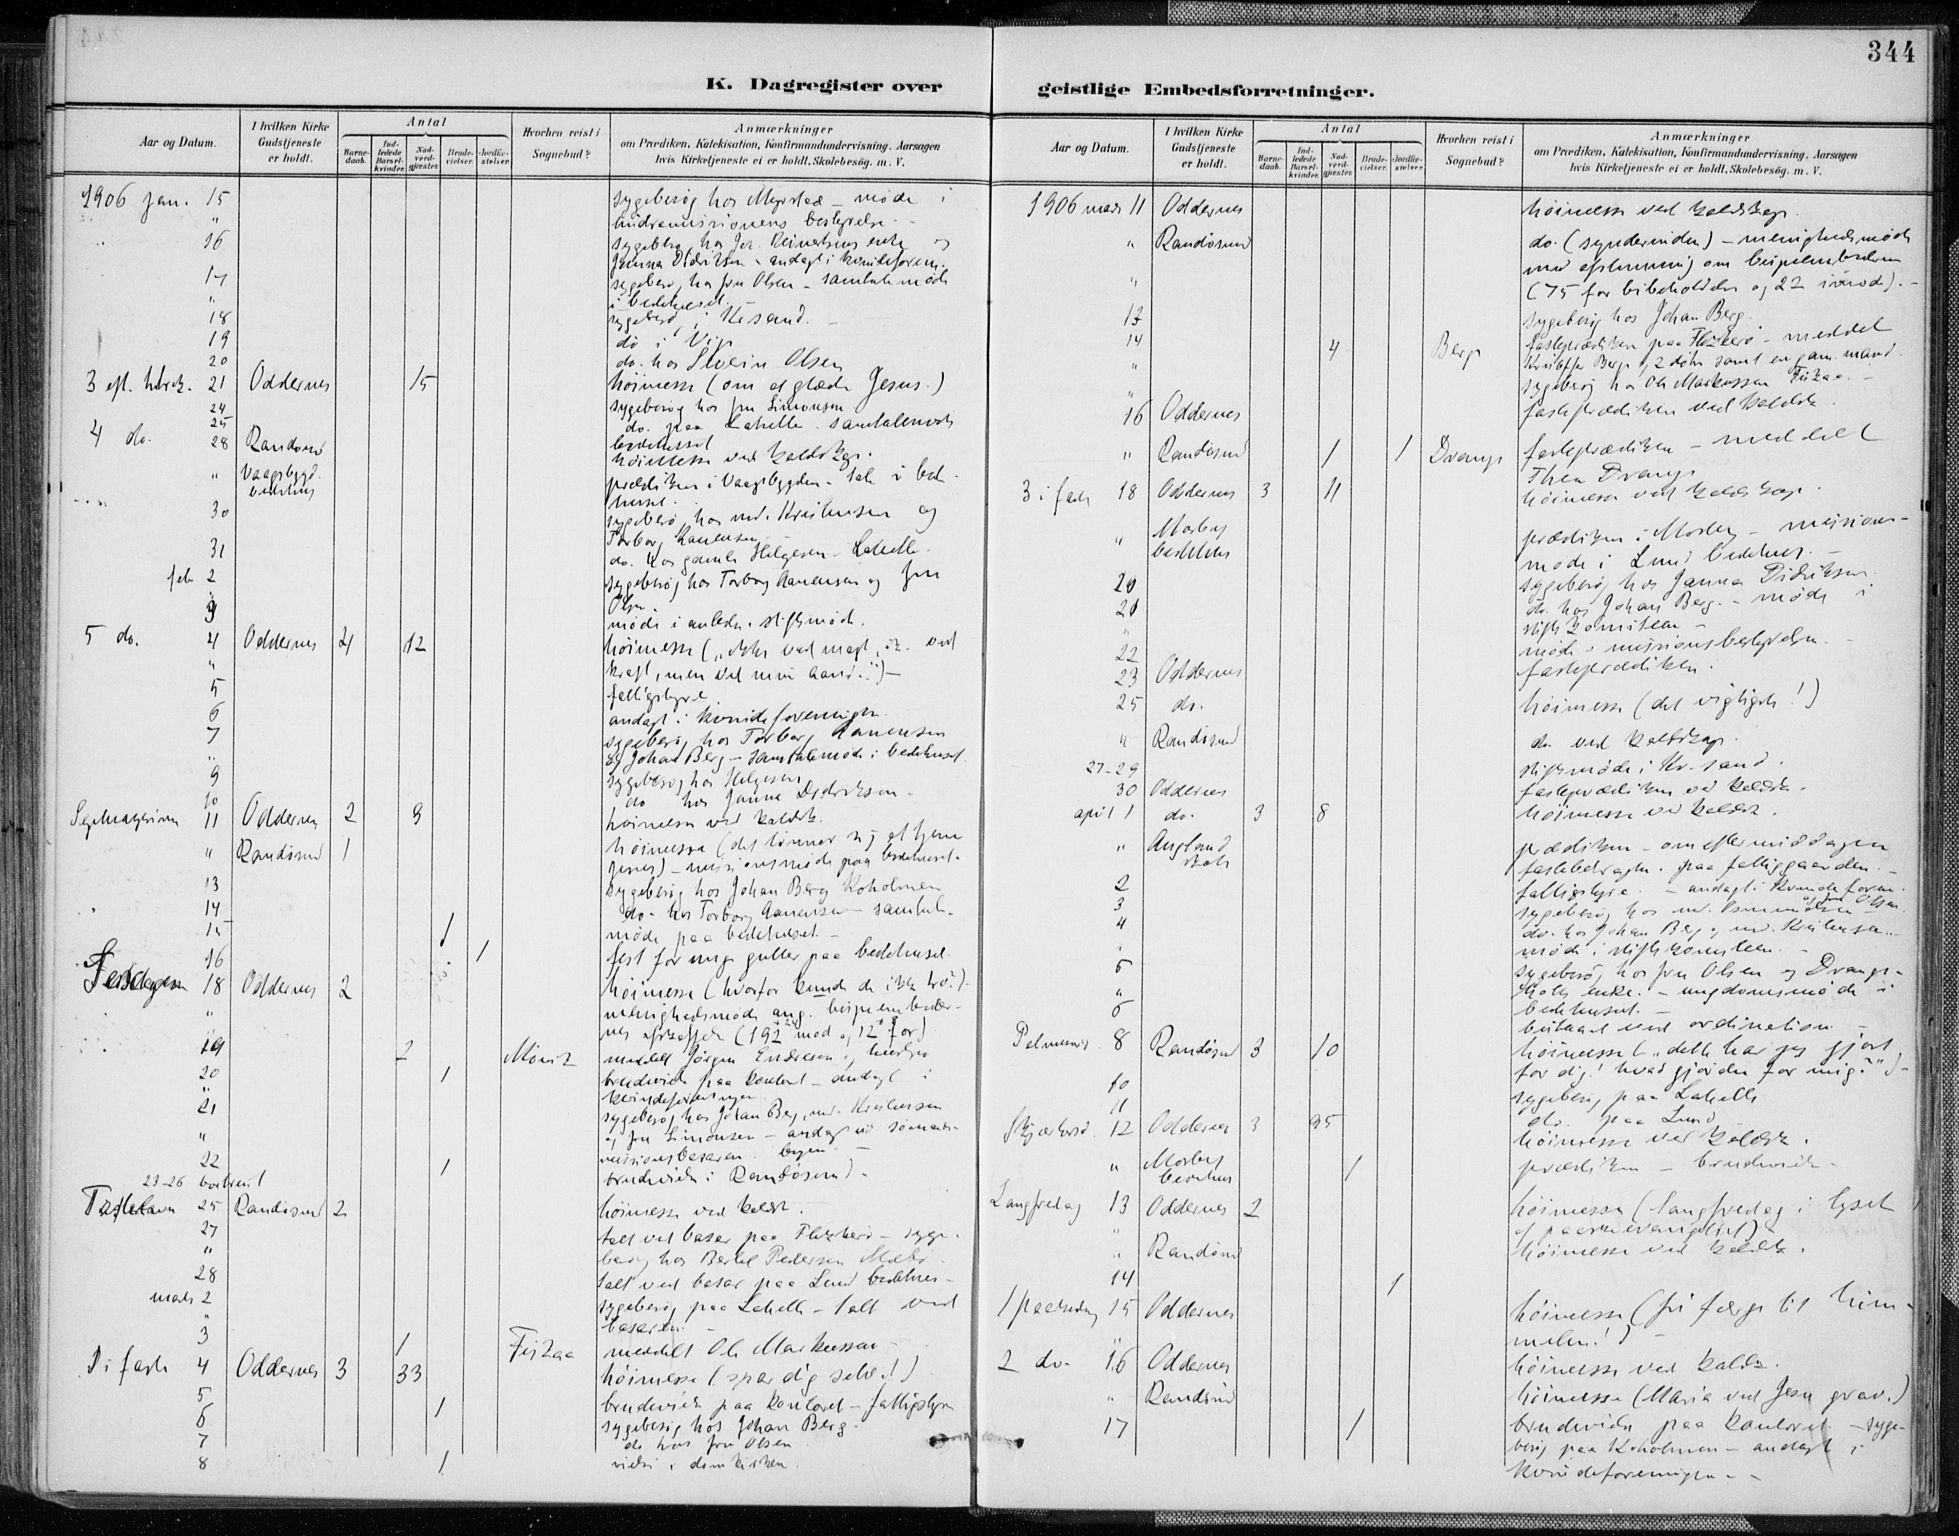 344
K. Dagregister over
Aar og Datum.
I hvilken Kirke Gudstjeneste er holdt.
Antal
Barne-daab.
Ind-ledede Barsel-kvinder.
Nad-verd-gjæster.
Brude-vielser.
Jordfæ-stelser.
Hvorhen reist i Sognebud?
Anmærkninger
om Prædiken, Katekisation, Konfirmandundervisning, Aarsagen
hvis Kirketjeneste ei er holdt, Skolebesøg. m. V.
1906 jan. 15 sygebesøg hos — møde i
" bestyrelse
16 sygebesøg hos Joh. enke og
andagt i kvindeforen.
17 sygebesøg hos fru Olsen — samtalemøde
" i bedehuset.
18 sygebesøg i
19 do i
20 do. hos Olsen
3 eft. 21 Oddernes 15 høimesse (om at glæde Jesus.)
24 sygebesøg hos fru Simonsen
25 do. paa Lahelle. samtalemøde
bedehuset
4 do. 28 Randøsund høimesse ved kaldskap.
" Vaagsbygd bedehus prædiken i Vaagsbygden — tale i bede-
huset.
30 sygebesøg hos og
Torborg Aanensen
31 do. hos gamle Helgesen — Lahelle.
feb 2 sygebesøg hos Torborg Aanensen og fru
Olsen.
3 møde i anledn. stiftsmøde.
5 do. 4 Oddernes 4 12 høimesse („ikke ved magt, ikke ved
" kraft, men ved min aand..") —
5 fattigstyre
6 andagt i kvindeforeningen.
7 sygebesøg hos Torborg Aanensen
" og Johan Berg — samtalemøde i bedehuset
9 sygebesøg hos Helgesen
10 do hos Janna Didriksen —
11 Oddernes 2 9 høimesse ved kaldsk.
" Randøsund 1 høimesse (det lønner sig at tjene
Jesus) — missionsmøde paa bedehuset.
13 sygebesøg hos Johan Berg Koholmen
14 do. hos Torborg Aanensen — samtale-
15 1 møde paa bedehuset —
16 1 fest for unge gutter paa bedehuset.
18 Oddernes 2 høimesse (hvorfor kunde de ikke tro?) —
" menighedsmøde ang.
mod og 12 for)
19 2 meddelt Jørgen og hustru
20 1 brudevielse paa kontoret — andagt i
" kvindeforeningen
21 sygebesøg hos Johan Berg,
og fru Simonsen — andagt
" missionsbasaren.
22 1 brudevielse i Randøsund.
23-26 bortreist
Fastelavn 25 Randøsund 2 høimesse ved kaldsk.
27 talt ved basar paa Flekkerø — syge-
" besøg hos Bertel Pedersen
28 talt ved basar paa Lund bedehus —
mars 2 sygebesøg paa Lahelle — talt ved
" basaren —
3 1 Fiskaa meddelt Ole Markussen —
1 i faste 4 Oddernes 3 33 høimesse (spar dig selv!)
5 1 brudevielse paa kontoret — fattigstyre
6 sygebesøg hos Johan Berg.
7 do hos fru Olsen
8 1 vielse i domkirken.
geistlige Embedsforretninger.
Aar og Datum.
I hvilken Kirke Gudstjeneste er holdt.
Antal
Barne-daab.
Ind-ledede Barsel-kvinder.
Nad-verd-gjæster.
Brude-vielser.
Jordfæ-stelser.
Hvorhen reist i Sognebud?
Anmærkninger
om Prædiken, Katekisation, Konfirmandundervisning, Aarsagen
hvis Kirketjeneste ei er holdt, Skolebesøg. m. V.
1906 mars 11 Oddernes høimesse ved kaldskap.
" Randøsund do. (synderinden) — menighedsmøde
med afstemning om
" (75 for bibeholdelse og 22 imod). —
13 sygebesøg hos Johan Berg.
14 4 Berge fasteprædiken paa Flekkerø — meddelt
" Berge, 2 døtre samt en gam. mand.
" sygebesøg hos Ole Markussen Fiskaa. —
16 Oddernes fasteprædiken ved kaldsk.
" Randøsund 1 1 Drange fasteprædiken — meddelt
Thea Drange
3 i faste 18 Oddernes 3 11 høimesse ved kaldskap.
" Mosby bedehus prædiken i Mosby — missions-
møde i Lund bedehus. —
20 sygebesøg hos Janna Didriksen.
21 do. hos Johan Berg. — møde i
" stiftskomiteen —
22 møde i missionsbestyrelsen. —
23 Oddernes fasteprædiken.
25 do. høimesse (det vigtigste!)
" Randøsund do. ved kaldskap.
27-29 stiftsmøde i Kr.sand.
30 Oddernes fasteprædiken ved kaldsk.
april 1 do. 3 8 høimesse ved kaldsk.
" Augland skole prædiken — om eftermiddagen
fastebetragtn. paa fattiggaarden. —
2 fattigstyre. — andagt i kvindeforen.
3 sygebesøg hos og fru Olsen.
4 do. hos Johan Berg og
" møde i stiftskomiteen. —
5 sygebesøg hos fru Olsen og Drange-
" enke. — ungdomsmøde i
6 bedehuset. —
bistaaet ved ordination —
Palmesønd. 8 Randøsund 3 10 høimesse („dette har jeg gjort
for dig! hvad gjør du for mig?") —
10 sygebesøg paa Lahelle
11 do. paa Lund
Skjærtorsd. 12 Oddernes 3 95 høimesse ved kaldsk.
" Mosby bedehus 1 prædiken — brudevielse —
Langfredag 13 Oddernes 2 høimesse (langfredag i lyset
af paaskeevangeliet)
" Randøsund høimesse ved kaldsk.
14 1
1 paaskedag 15 Oddernes høimesse (fri færge til him-
melen!) —
2 do. 16 Oddernes høimesse ved kaldsk.
" Randøsund høimesse (Maria ved Jesu grav.)
17 1 brudevielse paa kontoret — syge-
besøg paa Koholmen — andagt i
kvindeforeningen. —